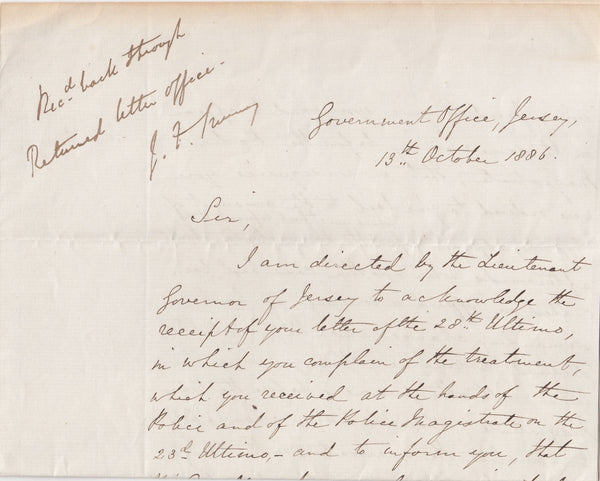 Rec.d back through
Returned letter office.
J. F.
Government Office, Jersey,
13th October 1886.
Sir,
I am directed by the Lieutenant
Governor of Jersey to acknowledge the
receipt of your letter of the 28th Ultimo,
in which you complain of the treatment,
which you received at the hands of the
Police and of the Police Magistrate on the
23d Ultimo,- and to inform you, that